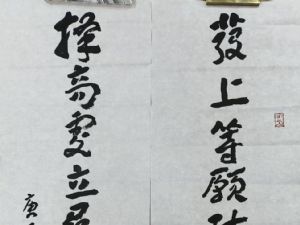 發上等願
擇高處立
庚